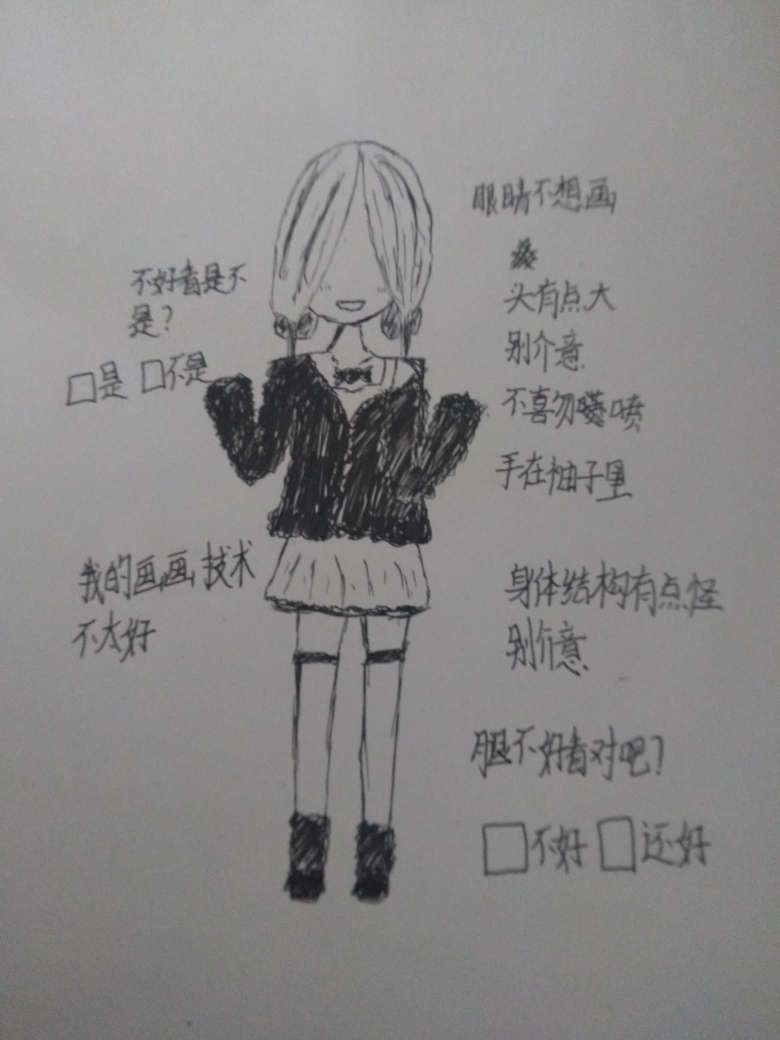 眼睛不想画
头有点大
别介意
不喜勿喷
手在袖子里
身体结构有点怪
别介意
腿不好看对吧?
□不好 □还好
不好看是不
是?
□是 □不是
我的画画技术
不太好